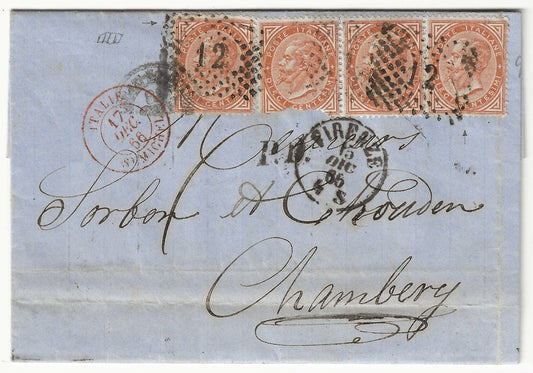 POSTE ITALIANE POSTE ITALIANE POSTE ITALIANE POSTE ITALIANE
12 12
DIECI CENTESIMI DIECI CENTESIMI DIECI CENTESIMI DIECI CENTESIMI
ITALIE
17
DEC
66
P.D.
FIRENZE
15
DIC
66
8 S
Messieurs
Sorbon et Chouden
Chambery